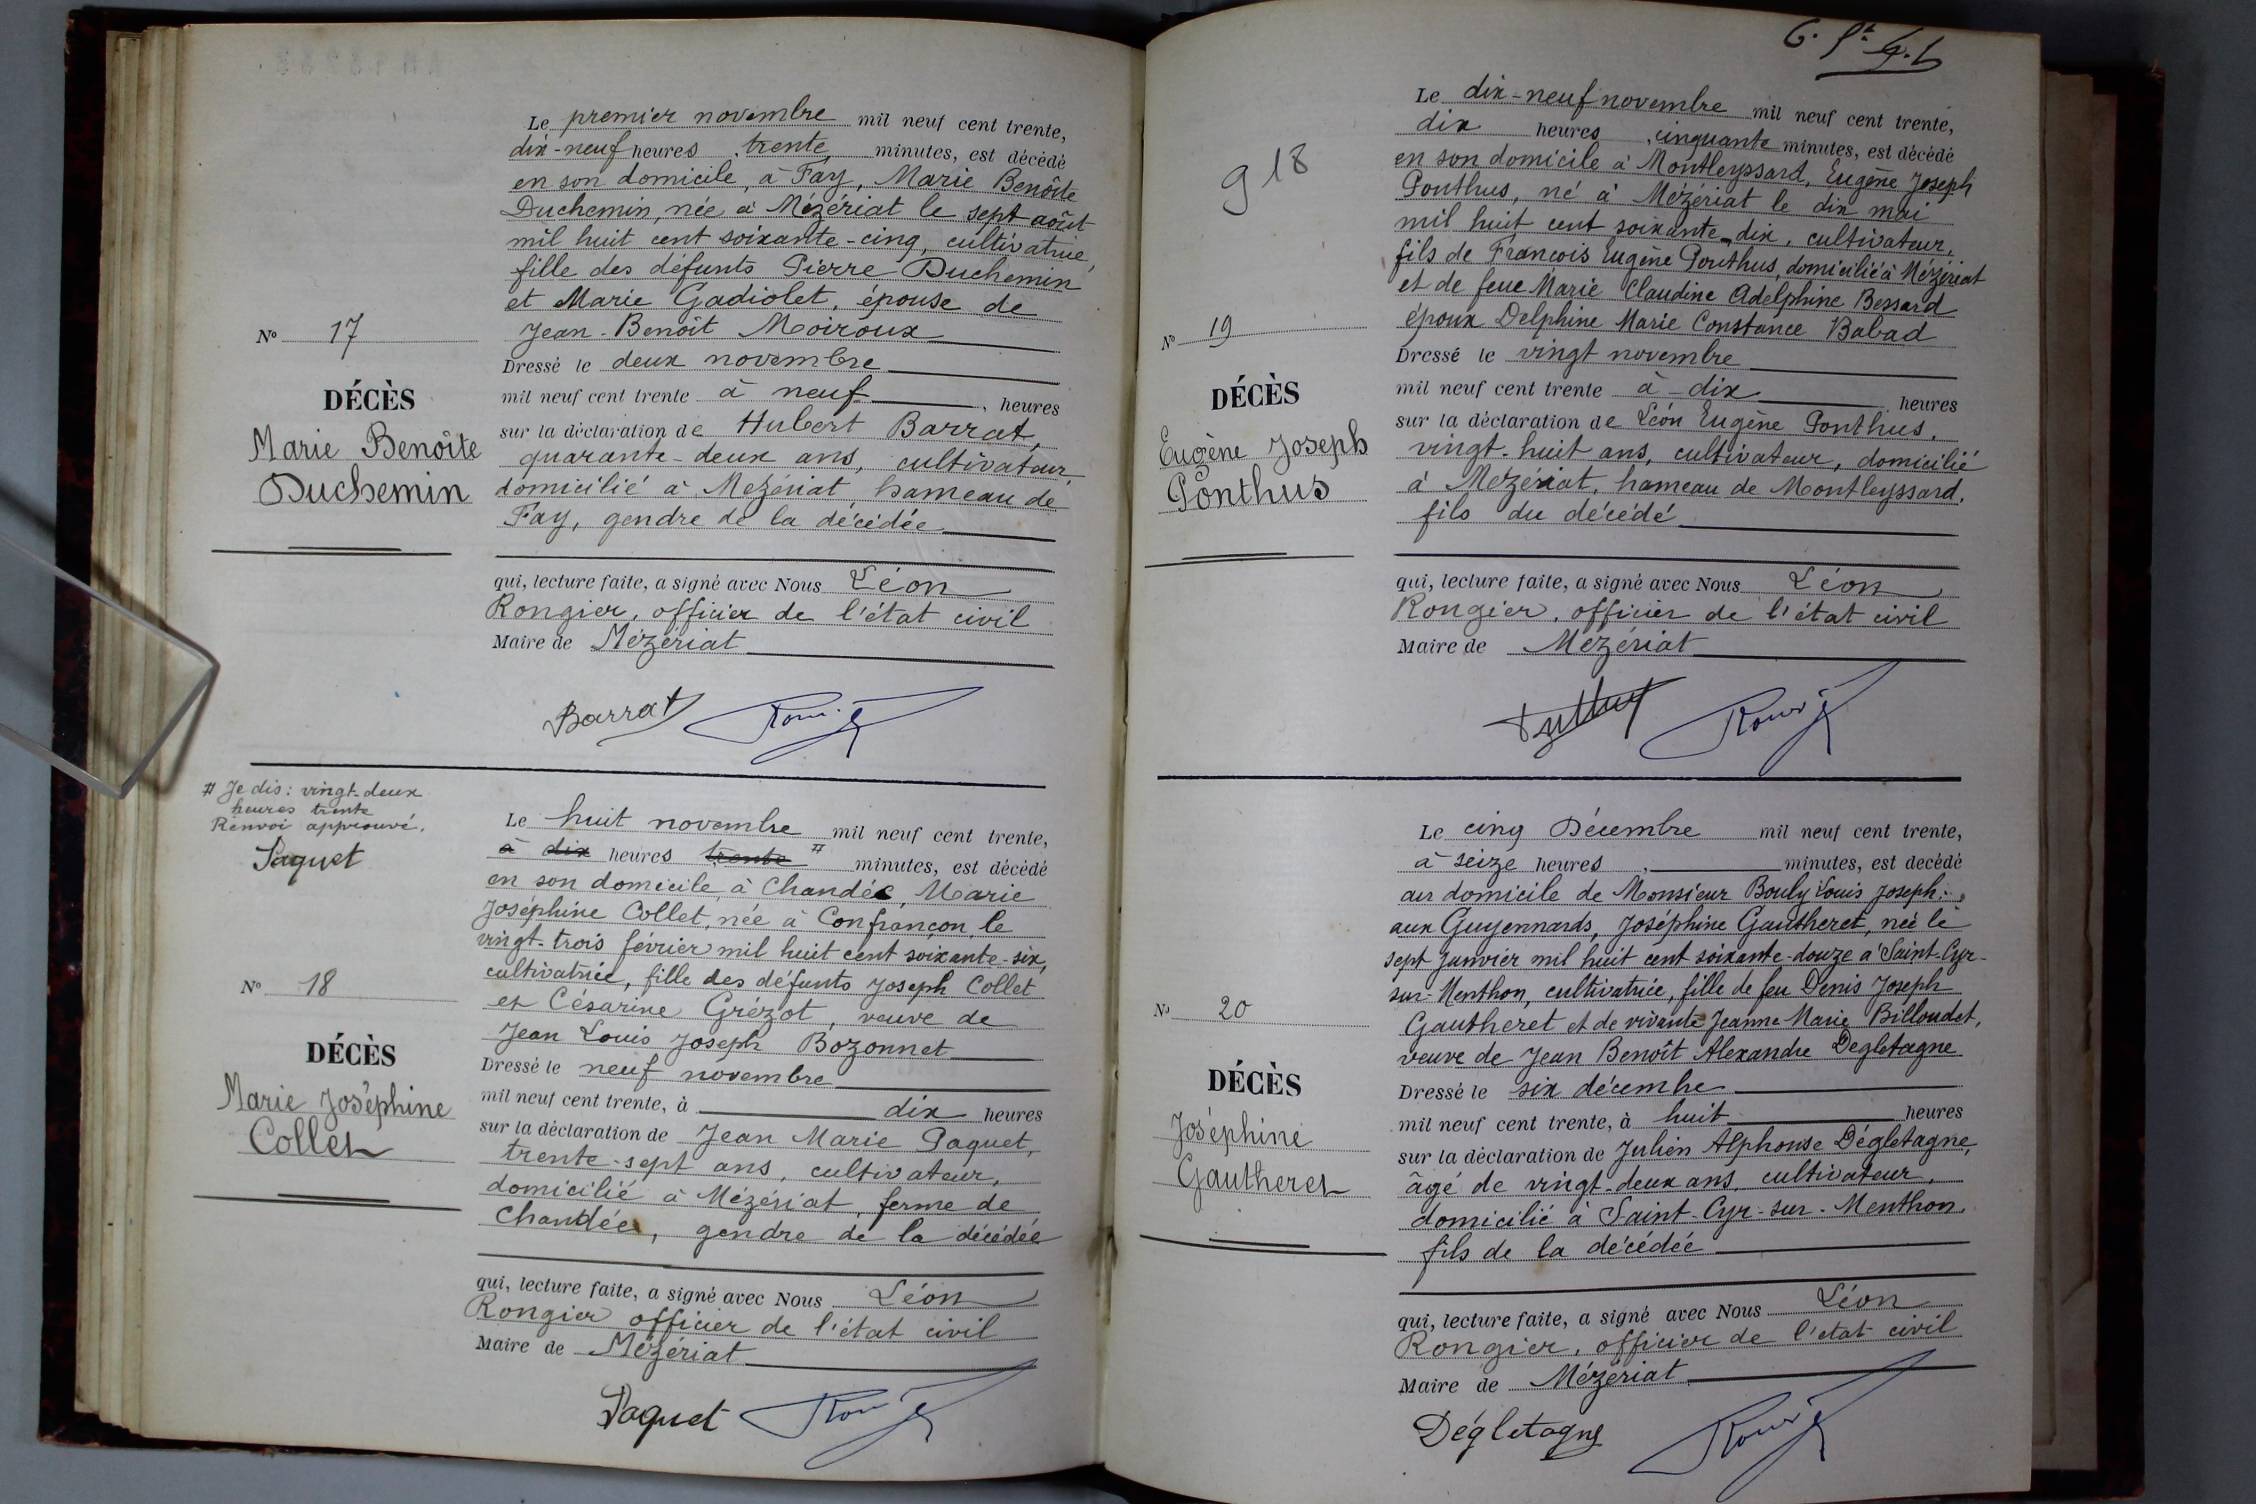 Le premier novembre mil neuf cent trente,
dix-neuf heures trente minutes, est décédé
en son domicile, à Fay, Marie Benôite
Duchemin, née à Mézériat le sept août
mil huit cent soixante-cinq, cultivatrice,
fille des défunts Pierre Duchemin
et Marie Gadiolet, épouse de
Jean-Benoît Moiroux
Dressé le deux novembre
mil neuf cent trente à neuf, heures
sur la déclaration de Hubert Barrat,
quarante-deux ans, cultivateur
domicilié à Mézériat, hameau de
Fay, gendre de la décédée
qui, lecture faite, a signé avec Nous Léon
Rongier, officier de l'état civil
Maire de Mézériat
Barrat
N° 17
DÉCÈS
Marie Benoîte
Duchemin
# Je dis : vingt-deux
heures trente
Renvoi approuvé.
Paquet
Le huit novembre mil neuf cent trente,
à dix heures trente # minutes, est décédé
en son domicile à Chandée, Marie
Joséphine Collet, née à Confrançon, le
vingt-trois février mil huit cent soixante-six,
cultivatrice, fille des défunts Joseph Collet
et Césarine Grézot, veuve de
Jean Louis Joseph Bozonnet
Dressé le neuf novembre
mil neuf cent trente, à dix heures
sur la déclaration de Jean Marie Paquet,
trente-sept ans, cultivateur,
domicilié à Mézériat, ferme de
Chandée, gendre de la décédée
qui, lecture faite, a signé avec Nous Léon
Rongier officier de l'état civil
Maire de Mézériat
Paquet
N° 18
DÉCÈS
Marie Joséphine
Collet
918
Le dix-neuf novembre mil neuf cent trente,
dix heures, cinquante minutes, est décédé
en son domicile à Montleyssard, Eugène Joseph
Ponthus, né à Mézériat le dix mai
mil huit cent soixante-dix, cultivateur,
fils de Francois Eugène Ponthus, domicilié à Mézériat
et de feue Marie Claudine Adelphine Bessard
époux Delphine Marie Constance Babad
Dressé le vingt novembre
mil neuf cent trente à dix heures
sur la déclaration de Léon Eugène Ponthus,
vingt-huit ans, cultivateur, domicilié
à Mézériat, hameau de Montleyssard,
fils du décédé
qui, lecture faite, a signé avec Nous Léon
Rongier, officier de l'état civil
Maire de Mézériat
N° 19
DÉCÈS
Eugène Joseph
Ponthus
Le cinq Décembre mil neuf cent trente,
à seize heures, minutes, est decédé
au domicile de Monsieur Bouly Louis Joseph.
aux Guyennards, Joséphine Gautheret, née le
sept Janvier mil huit cent soixante-douze à Saint-Cyr-
sur-Menthon, cultivatrice, fille de feu Denis Joseph
Gautheret et de vivante Jeanne Marie Billoudet,
veuve de Jean Benoît Alexandre Degletagne
Dressé le six décembre
mil neuf cent trente, à huit heures
sur la déclaration de Julien Alphonse Dégletagne,
âgé de vingt-deux ans, cultivateur,
domicilié à Saint-Cyr-sur-Menthon,
fils de la décédée
qui, lecture faite, a signé avec Nous Léon
Rongier, officier de l'etat civil
Maire de Mézériat
Dégletagne
N° 20
DÉCÈS
Joséphine
Gautheret